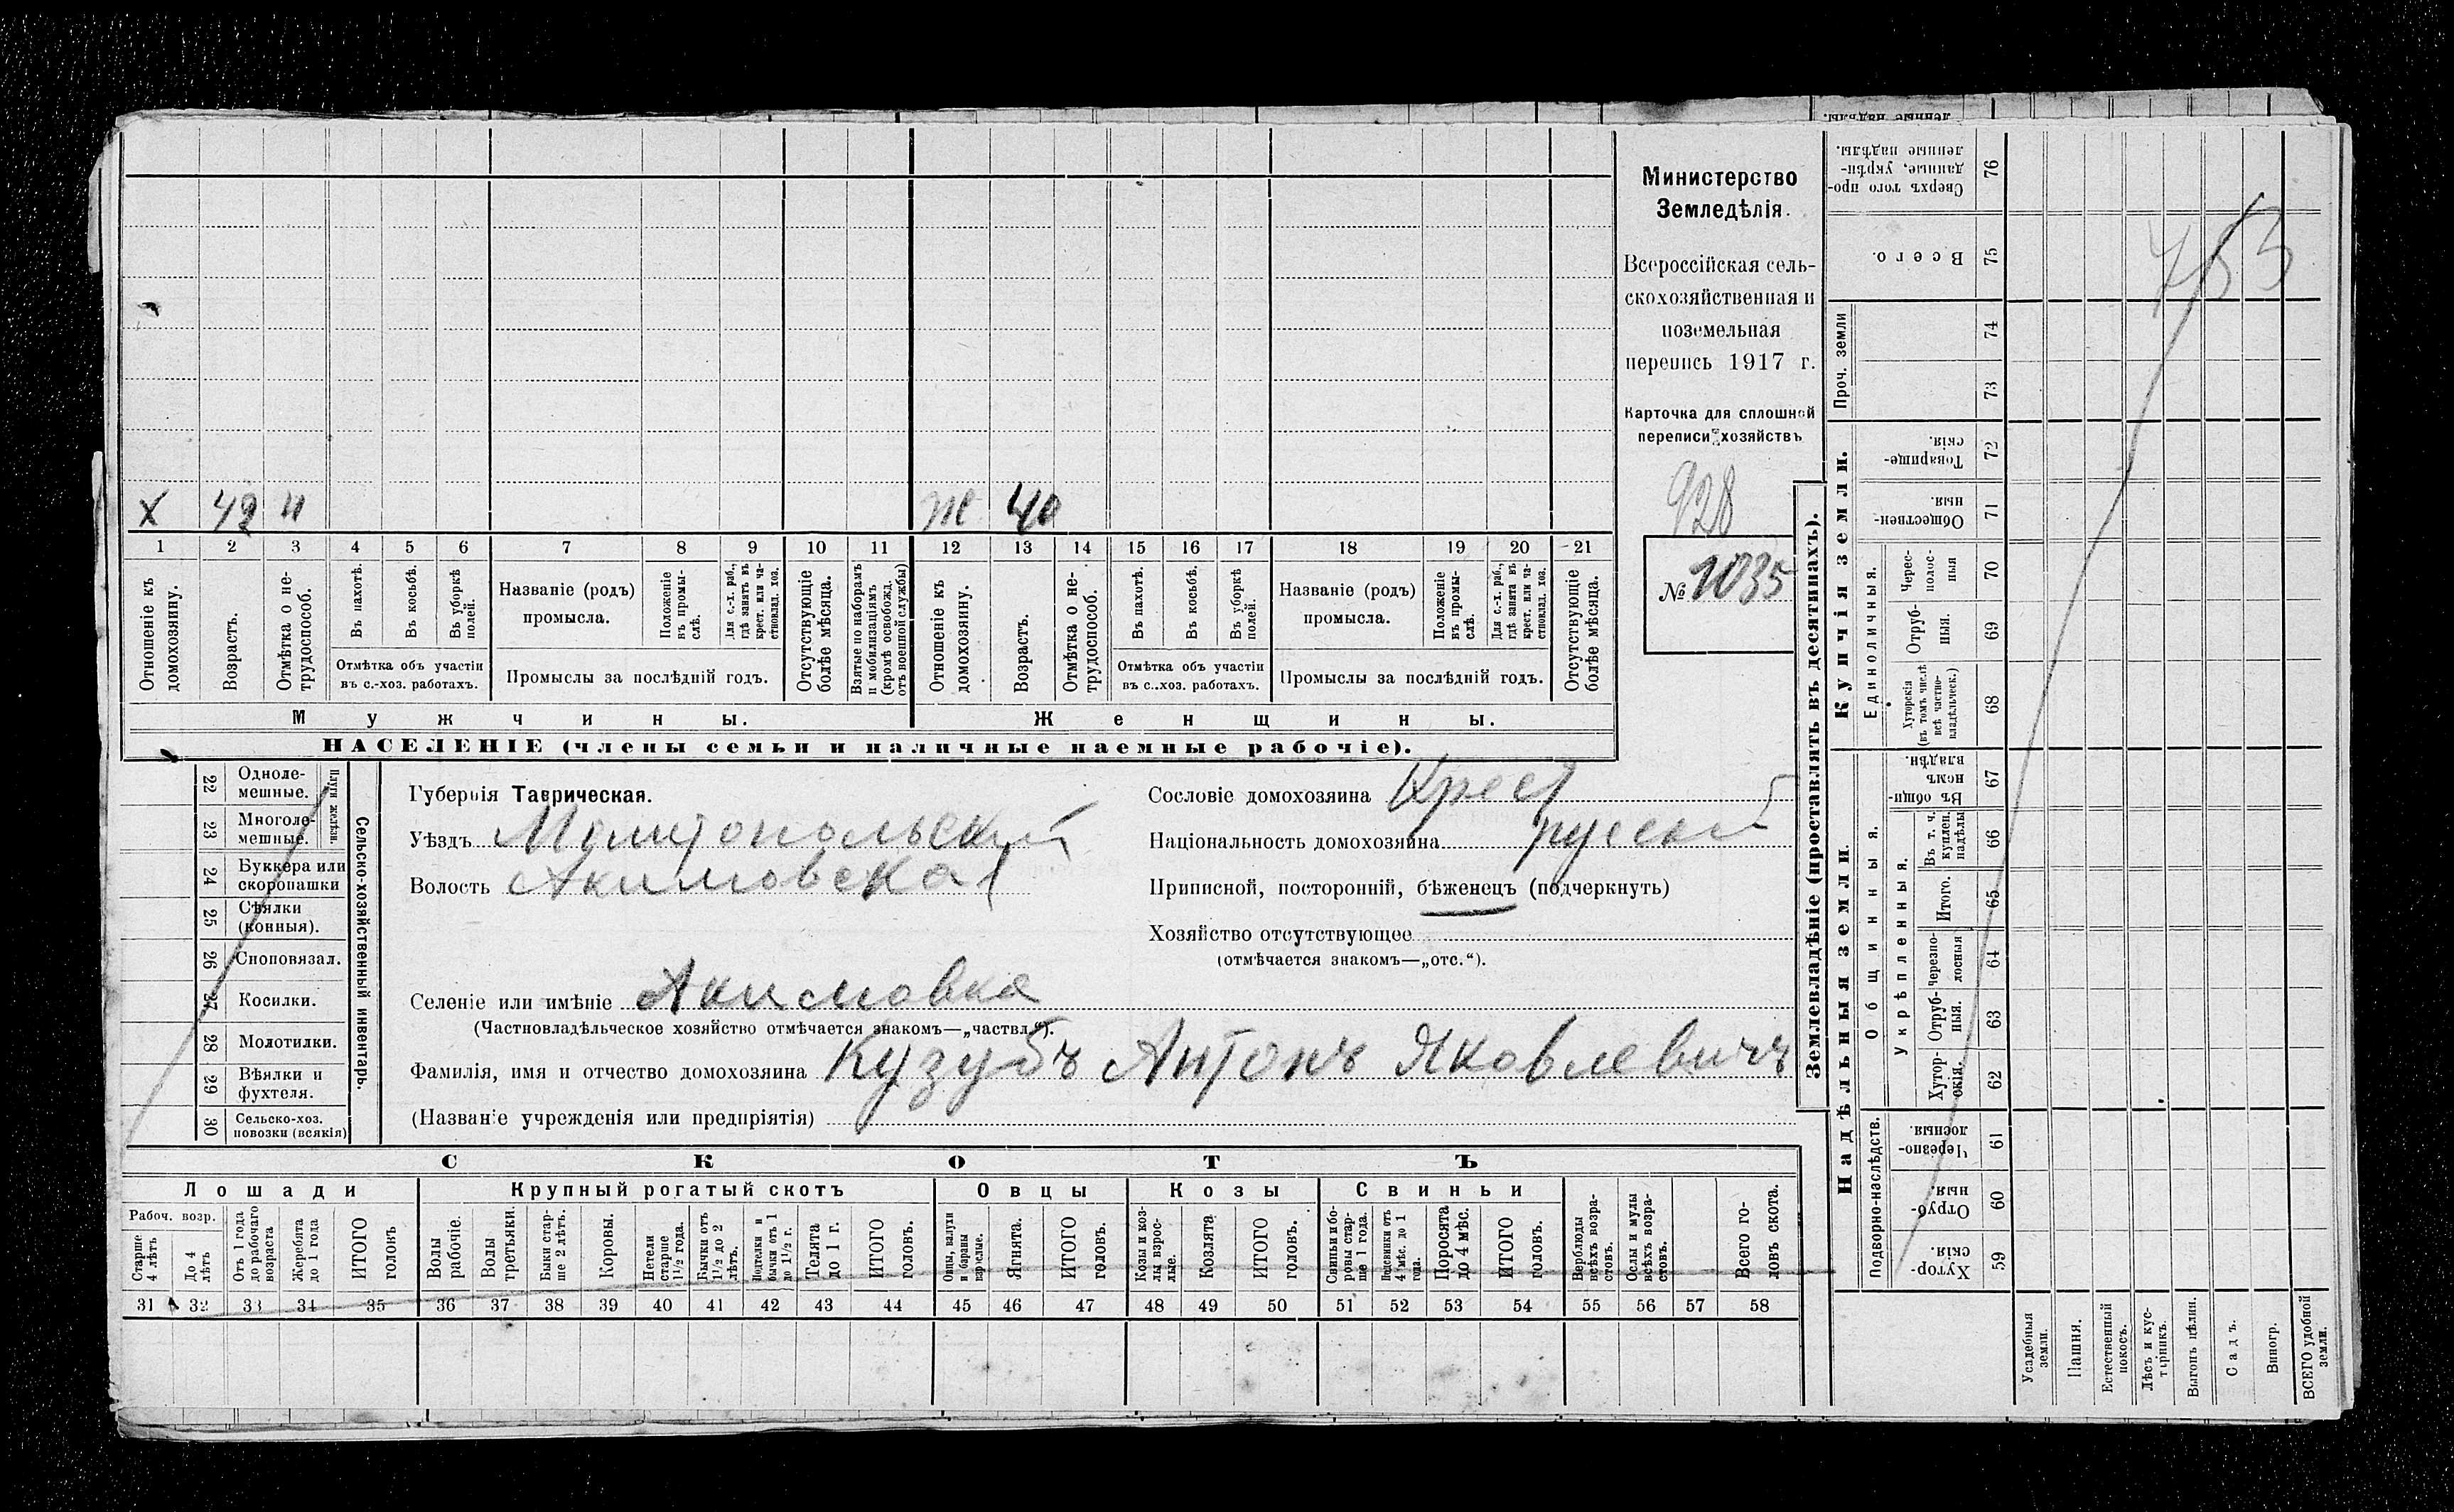 Министерство
Земледѣлія.
Всероссійская сель-
скохозяйственная и
поземельная
перепись 1917 г.
Карточка для сплошной
переписи хозяйствъ
928
№ 1035
х 42 н ж 40
1 2 3 4 5 6 7 8 9 10 11 12 13 14 15 16 17 18 19 20 21
Отношеніе къ домохозяину.
Возрастъ.
Отмѣтка о не-трудоспособ.
Въ пахотѣ.
Въ косьбѣ.
Въ уборкѣ полей.
Отмѣтка объ участіи
въ с.-хоз. работахъ.
Названіе (родъ)
промысла.
Положеніе въ промы-слѣ.
Для с.-х. раб., гдѣ занятъ въ крест. или ча-стновлад. хоз.
Промыслы за послѣдній годъ.
Отсутствующіе болѣе мѣсяца.
Взятые по наборамъ и мобилизаціямъ (кромѣ освобожд. отъ военной службы)
Отношеніе къ домохозяину.
Возрастъ.
Отмѣтка о не-трудоспособ.
Въ пахотѣ.
Въ косьбѣ.
Въ уборкѣ полей.
Отмѣтка объ участіи
въ с.-хоз. работахъ.
Названіе (родъ)
промысла.
Положеніе въ промы-слѣ.
Для с.-х. раб., гдѣ занята въ крест. или ча-стновлад. хоз.
Промыслы за послѣдній годъ.
Отсутствующіе болѣе мѣсяца.
Мужчины.
Женщины.
НАСЕЛЕНІЕ (члены семьи и наличные наемные рабочіе).
22 Одноле-мешные.
23 Многоле-мешные.
Плуги желѣзн.
24 Буккера или скоропашки
25 Сѣялки (конныя).
26 Сноповязал.
27 Косилки.
28 Молотилки.
29 Вѣялки и фухтеля.
30 Сельско-хоз. повозки (всякія)
Сельско-хозяйственный инвентарь.
Губернія Таврическая.
Уѣздъ Мелитопольскій
Волость Акимовская
Сословіе домохозяина Крест
Національность домохозяина русский
Приписной, посторонній, бѣженецъ (подчеркнуть)
Хозяйство отсутствующее
(отмѣчается знакомъ—„отс.“).
Селеніе или имѣніе Акимовка
(Частновладѣльческое хозяйство отмѣчается знакомъ—„частвл.“).
Фамилія, имя и отчество домохозяина Кузубъ Антонъ Яковлевичъ
(Названіе учрежденія или предпріятія)
СКОТЪ
Лошади
Крупный рогатый скотъ
Овцы
Козы
Свиньи
Рабоч. возр.
Старше 4 лѣтъ
До 4 лѣтъ
Отъ 1 года до рабочаго возраста
Жеребята до 1 года
ИТОГО головъ
Волы рабочіе.
Волы третьяки.
Быки стар-ше 2 лѣтъ.
Коровы.
Нетели старше 1½ года.
Бычки отъ 1½ до 2 лѣтъ.
Подтелки и бычки отъ 1 до 1½ г.
Телята до 1 г.
ИТОГО головъ.
Овцы, валухи и бараны взрослые.
Ягнята.
ИТОГО головъ.
Козы и коз-лы взрос-лые.
Козлята
ИТОГО головъ.
Свиньи и бо-ровы стар-ше 1 года.
Подсвинки отъ 4 мѣс. до 1 года.
Поросята до 4 мѣс.
ИТОГО головъ.
Верблюды всѣхъ возра-стовъ.
Ослы и мулы всѣхъ возра-стовъ.
Всего го-ловъ скота.
31 32 33 34 35 36 37 38 39 40 41 42 43 44 45 46 47 48 49 50 51 52 53 54 55 56 57 58
Землевладѣніе (проставлять въ десятинахъ).
Купчія земли.
Надѣльныя земли.
Проч. земли
Единоличныя.
Общинныя.
Укрѣпленныя.
Подворно-наслѣдств.
76 Сверхъ того про-данные, укрѣп-ленные надѣлы.
75 Всего.
74
73
72 Товарище-скія.
71 Обществен-ныя.
70 Черес-полос-ныя
69 Отруб-ныя.
68 Хуторскія (въ томъ числѣ всѣ частно-владѣльческ.)
67 Въ общин-номъ владѣн.
66 Въ т. ч. куплен. надѣлы
65 Итого.
64 Черезпо-лосныя
63 Отруб-ныя.
62 Хутор-скія.
61 Черезпо-лосныя
60 Отруб-ныя
59 Хутор-скія.
Усадебныя земли.
Пашня.
Естественный покосъ.
Лѣсъ и кус-тарникъ.
Выгонъ цѣлин.
Садъ.
Виногр.
ВСЕГО удобной земли.
753